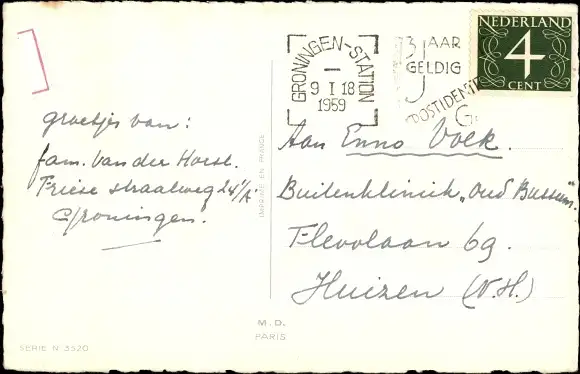 GRONINGEN-STATION
9 I 18
1959
3 JAAR
GELDIG
POSTIDENTI
NEDERLAND
4
CENT
groetjes van:
fam. van der Horst.
Friese straatweg 24/A
Groningen.
IMPRIMÉ EN FRANCE
Aan Enno Volk.
Buitenkliniek „Oud Bussum".
Flevolaan 69.
Huizen (N.H.)
M.D.
PARIS
SERIE N 3520